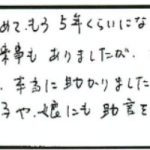 めて、もう 5年くらいにな
来事も ありましたが、
、本当に助かりました
子や、娘にも 助言を